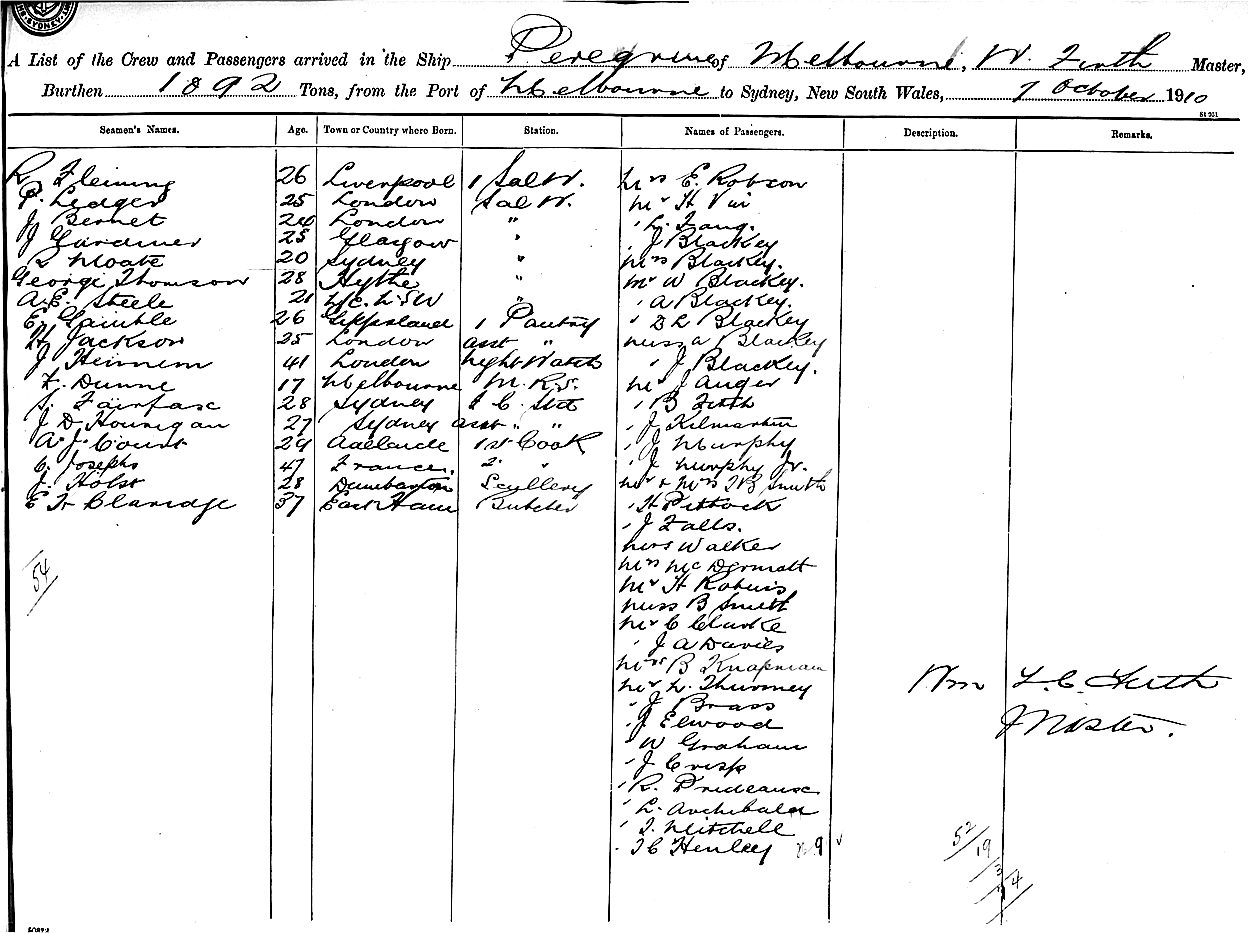 A List of the Crew and Passengers arrived in the Ship Peregrine of Melbourne, W. Firth Master,
Burthen 1892 Tons, from the Port of Melbourne to Sydney, New South Wales, 7 October 1910
St 201
Seamen's Names. Age. Town or Country where Born. Station. Names of Passengers. Description. Remarks.
R. Fleming 26 Liverpool 1 Sal W. Mrs E. Robson
P. Ledger 25 London Sal W. Mr H
J Bennet London " " L.
J Gardiner 25 Glasgow " " J Blackey
R Moate 20 Sydney " Mrs Blackey.
George Thomson 28 Hythe " Mr W Blackey.
A.E. Steele 21 N.S.W " " A Blackey.
E Gamble 26 Gippsland 1 Pantry " D L Blackey
H Jackson 25 London asst " Miss A Blackey
J 41 London Night Watch " J Blackey.
F. Dunne 17 Melbourne M.R.S. Mr J Anger
S. Fairfax 28 Sydney 2 C. Std " B Firth
J D Hourigan 27 Sydney asst " " " J Kilmartin
A. J. Count 29 Adelaide 1st Cook " J Murphy
C. Josephs 47 France. 2 " " J Murphy Jr.
J. Holst 28 Dumbarton Scullery Mr & Mrs T B Smith
E H Claridge 37 East Ham Butcher " H Pittock
" J Falls.
Mrs Walker
Mrs McDermott
54 Mr H
Miss B Smith
Mr C Clarke
" J A Davies
Mrs B Knapman
Mr L. Thurmey Wm L. C. Firth
" J Brass Master.
" J Elwood
" W Graham
" J Crisp
" R. Prideaux
" L. Archibald
" T. Mitchell
" T C Henley 52
19
3